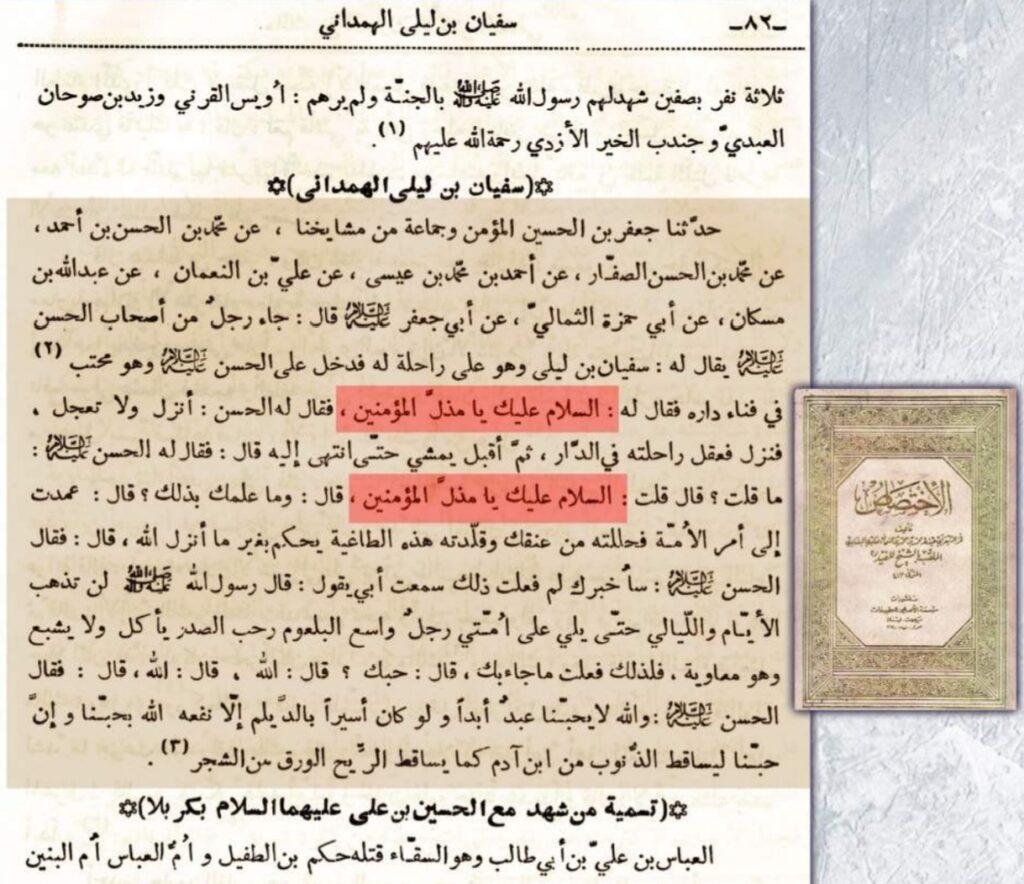 -٨٢-
سفيان بن ليلى الهمداني
ثلاثة نفر بصفين شهدلهم رسول الله ﷺ بالجنّة ولم يرهم : أويس القرني وزيد بن صوحان
العبديّ و جندب الخير الأزدي رحمة الله عليهم (١).
✡(سفيان بن ليلى الهمدانى)✡
حدّثنا جعفر بن الحسين المؤمن وجماعة من مشايخنا ، عن محّدبن الحسن بن أحمد ،
عن محّدبن الحسن الصفّار ، عن أحمدبن محّدبن عيسى ، عن عليّ بن النعمان ، عن عبدالله بن
مسكان ، عن أبي حمزة الثماليّ ، عن أبي جعفر عَلَيْهِ السَّلام قال : جاء رجلٌ من أصحاب الحسن
عَلَيْهِ السَّلام يقال له : سفيان بن ليلى وهو على راحلة له فدخل على الحسن عَلَيْهِ السَّلام وهو محتب (٢)
في فناء داره فقال له : السلام عليك يا مذلّ المؤمنين ، فقال له الحسن : أنزل ولا تعجل ،
فنزل فعقل راحلته في الدّار ، ثمّ أقبل يمشي حتّى انتهى إليه قال : فقال له الحسن عَلَيْهِ السَّلام :
ما قلت ؟ قال قلت : السلام عليك يا مذلّ المؤمنين ، قال : وما علمك بذلك ؟ قال : عمدت
إلى أمر الأمّة فحللته من عنقك وقلّدته هذه الطاغية يحكم بغير ما أنزل الله ، قال : فقال
الحسن عَلَيْهِ السَّلام : سأخبرك لم فعلت ذلك سمعت أبي يقول : قال رسول الله ﷺ لن تذهب
الأيّام واللّيالي حتّى يلي على اُمّتي رجلٌ واسع البلعوم رحب الصدر يأكل ولا يشبع
وهو معاوية ، فلذلك فعلت ماجاء بك ، قال : حبك ؟ قال : الله ، قال : الله ، قال : فقال
الحسن عَلَيْهِ السَّلام : والله لا يحبّنا عبدٌ أبداً و لو كان أسيراً بالدّيلم إلّا نفعه الله بحبّنا و إنَّ
حبّنا ليساقط الذّنوب من ابن آدم كما يساقط الرّيح الورق من الشجر (٣) .
✡(تسمية من شهد مع الحسين بن على عليهما السلام بكربلا)✡
العباس بن عليّ بن أبي طالب وهو السقّاء قتله حكم بن الطفيل و اُمّ العباس اُم البنين
الاختصاص
تأليف
الملقب بالشيخ المفيد